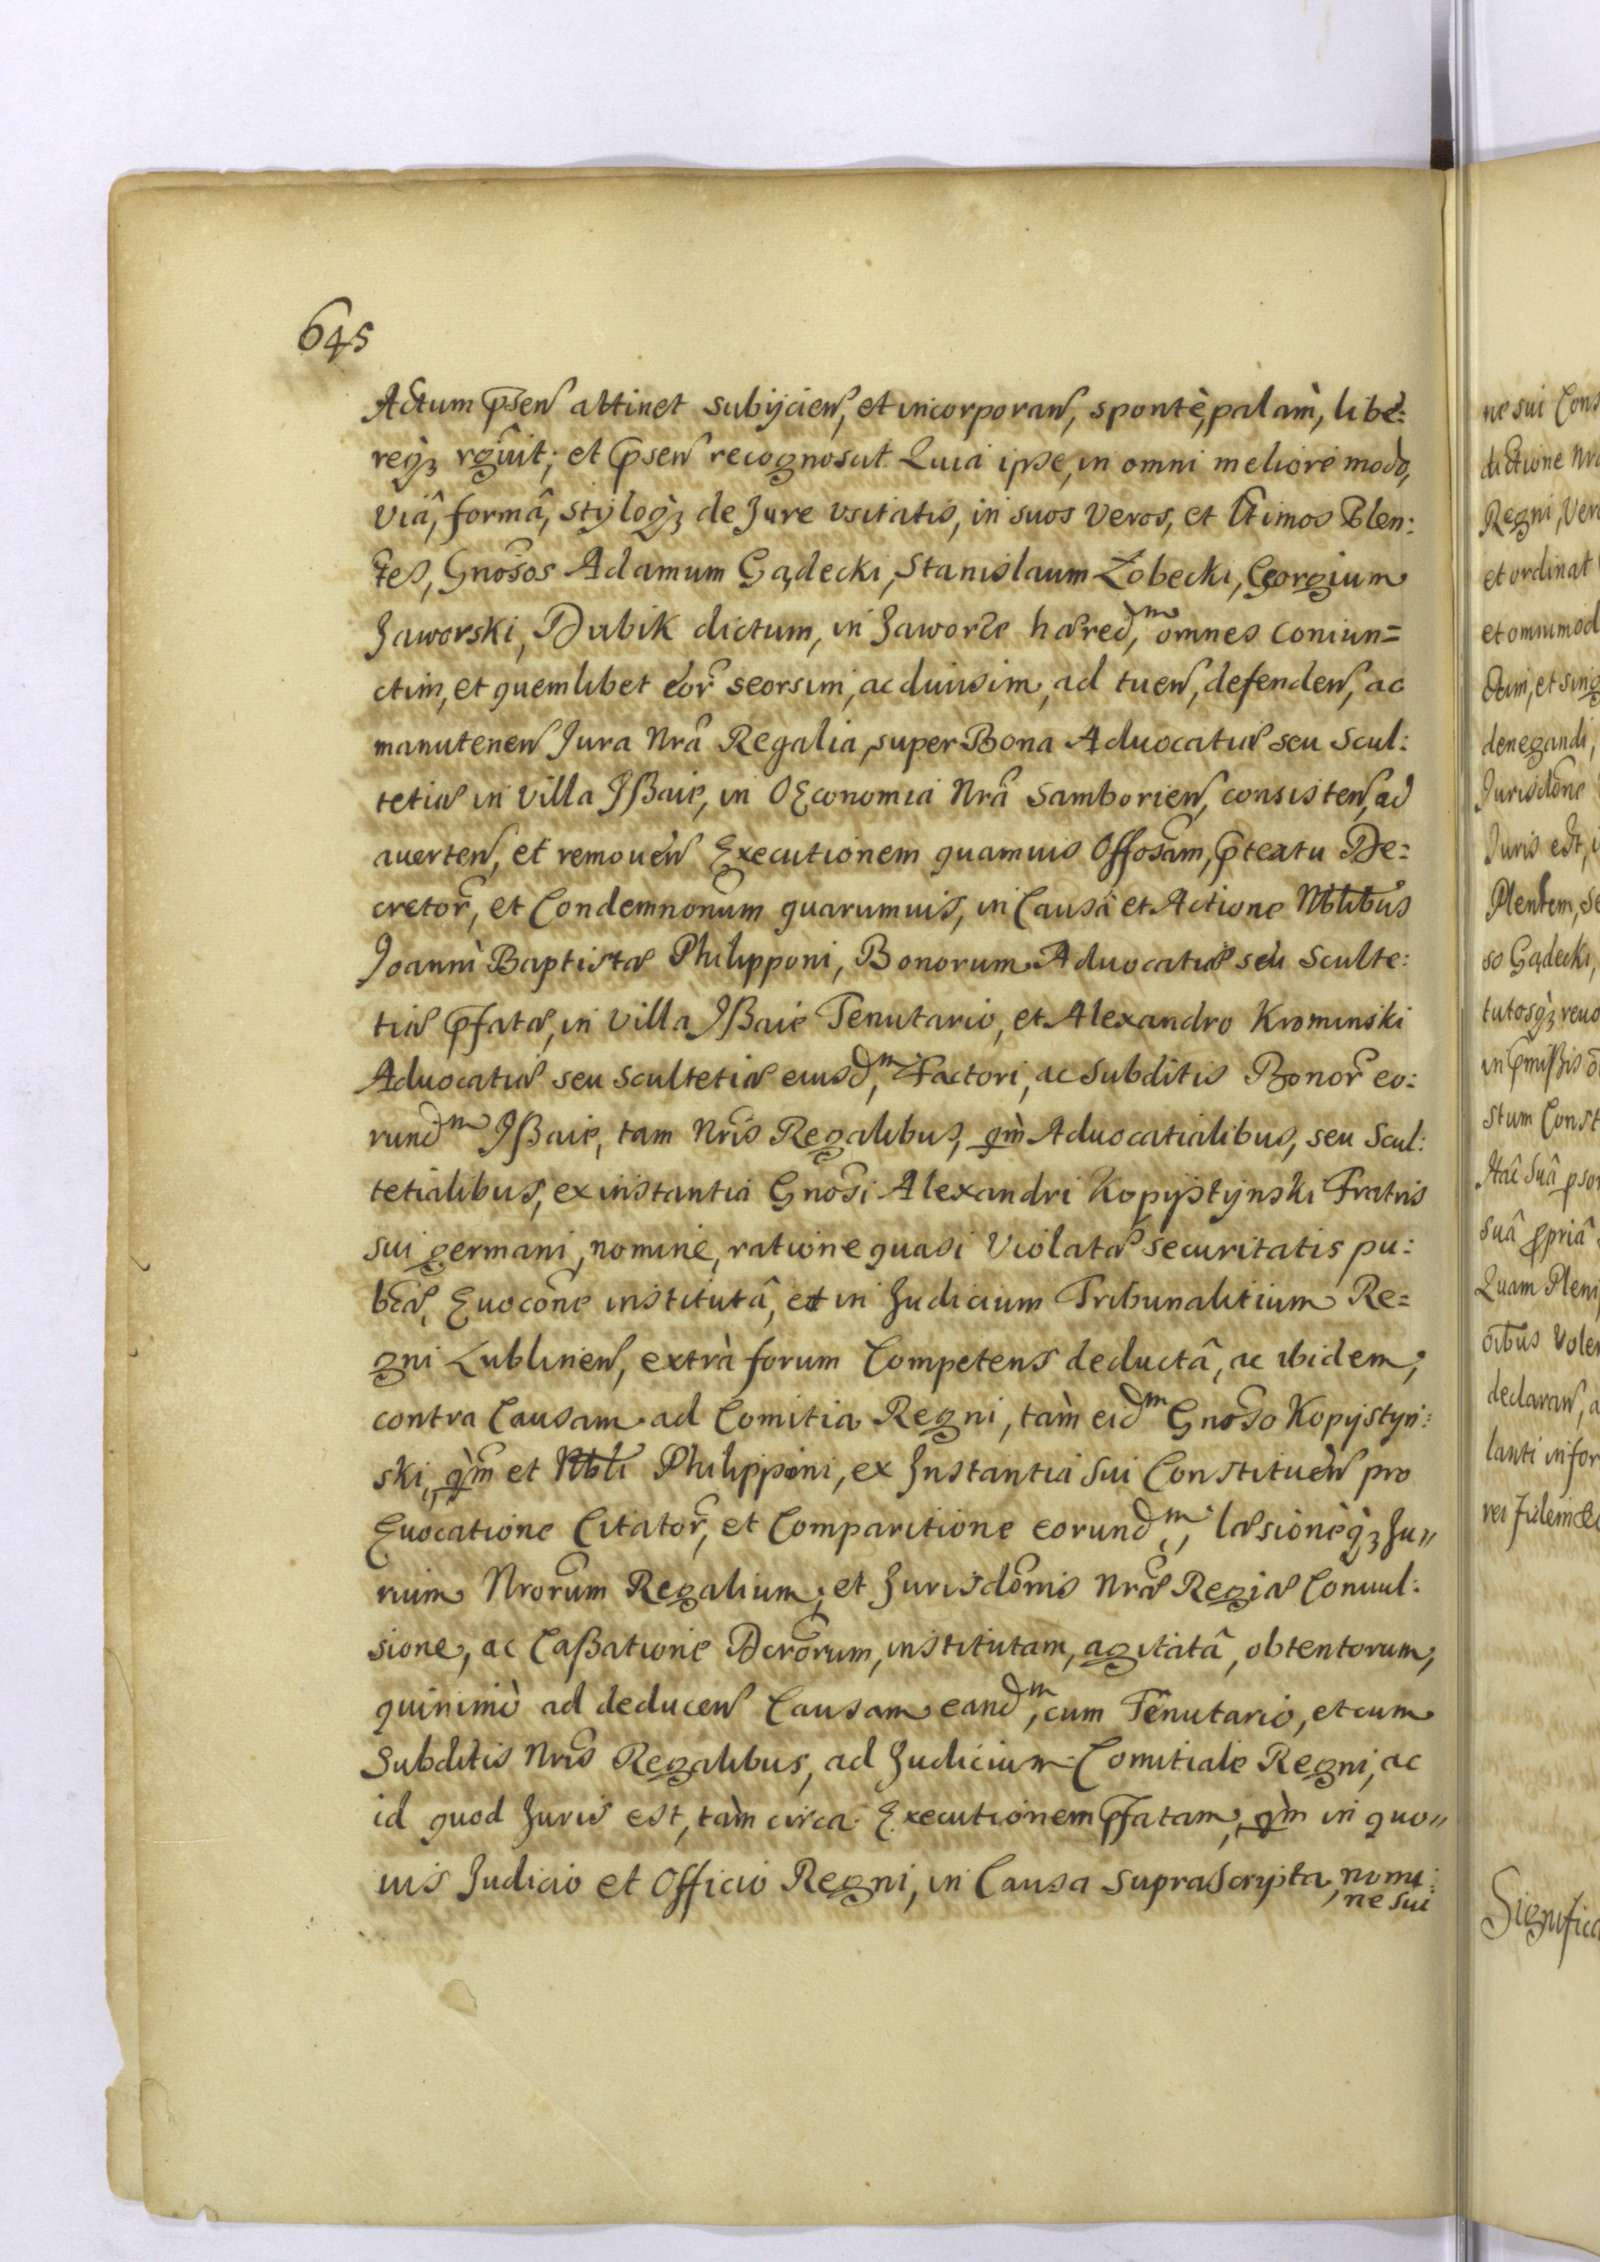 645
Actum p̃sen̄ attinet subijcien̄, et incorporan̄, spontè, palàm, libe:
reqꝫ rg̃uit; et p̃sen̄ recognoscit. Quia ipse, in omni meliori modo,
viâ, formâ, stÿloqꝫ de Jure vsitatis, in suos veros, et l̃timos Plen:
tes, Gnõsos Adamum Gądecki, Stanislaum Zobecki, Georgium
Jaworski, Dubik dictum, in Jaworze hæred̃m, omnes coniun=
ctim, et quemlibet eor̃ seorsim, ac diuisim, ad tuen̄, defenden̄, ac
manutenen̄ Jura Nr̃a Regalia, super Bona Aduocatiæ seu Scul:
tetiæ in villa Jßaie, in Oeconomia Nr̃a Samborien̄, consisten̄, ad
auerten̄, et remouen̄ Executionem quamuis Offõsam, p̃textu De:
cretor̃, et Condemnõnum quarumuis, in Causa et Actione Nbl̃ibus
Joanni Baptistæ Philipponi, Bonorum Aduocatiæ seu Sculte:
tiæ p̃fatæ, in villa Jßaie Tenutario, et Alexandro Krominski
Aduocatiæ seu Scultetiæ eiusd̃m, Factori, ac Subditis Bonor̃ eo:
rund̃m Jßaie, tam Nr̃is Regalibus, qm̀ Aduocatialibus, seu Scul:
tetialibus, ex instantia Gnõsi Alexandri Kopÿstÿnski Fratris
sui germani, nomine, ratione quasi violatæ securitatis pu:
bc̃æ, Euocõne institutâ, et in Judicium Tribunalitium Re=
gni Lublinen̄, extrà forum Competens deductâ, ac ibidem,
contra Causam ad Comitia Regni, tàm eid̃m Gnõso Kopÿstÿn:
ski, qm̀ et Nbl̃i Philipponi, ex Instantia sui Constituen̄ pro
Euocatione Citator̃, et Comparitione eorund̃m, læsioneqꝫ Ju"
rium Nr̃orum Regalium, et Jurisdõnis Nr̃æ Regiæ Conuul:
sione, ac Caßatione Dcr̃orum, institutam, agitatâ, obtentorum,
quinimò ad deducen̄ Causam eand̃m, cum Tenutario, et cum
Subditis Nr̃is Regalibus, ad Judicium Comitiale Regni, ac
id quod Juris est, tàm circa Executionem p̃fatam, qm̀ in quo"
uis Judicio et Officio Regni, in Causa suprascripta, nomi:
ne sui
ne sui Cons
dictione Nra
Regni, Ver
et ordinat
et omnimod
ctim, et sing
denegandi,
Jurisdõne
Juris est, i
Plentem, se
so Gądecki,
tutosqꝫ reuo
in p̃mißis
stum Const
suâ
suâ p̃priâ
Quam Pleni
oĩbus vole
declaran̄, a
lanti infor
rei fidem &c
Significa